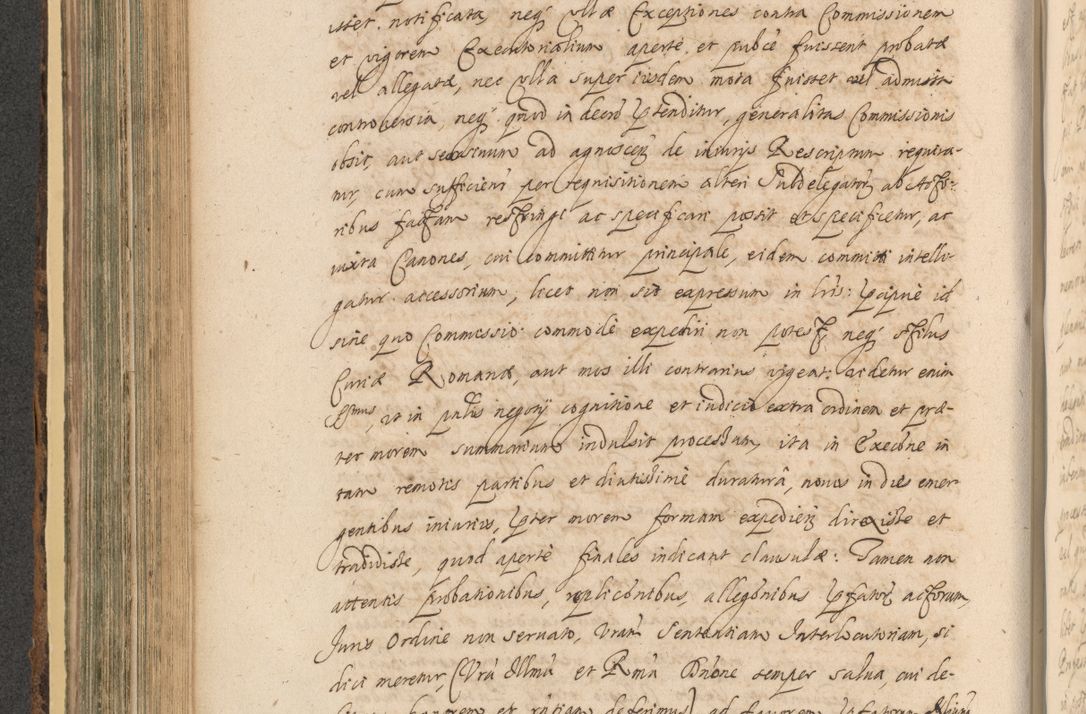 isset notificata neq; ullæ Exceptiones contra Commissionem
et vigorem Executorialium apertè et publicè fuissent probatæ
vel allegatæ, nec ulla super iisdem mota fuisset vel admissa
controversia, neq; quod in decreto prætenditur, generalitas Commissionis
obsit, aut ad agnoscen; de iniurijs Rescriptum requira-
tur, cum sufficienr per requisitionem alteri Subdelegator; ab Acto-
ribus factam restringi ac specificari possit et specificetur, ac
iuxta Canones, cui committitur principale, eidem committi intelli-
gatur accessorium, licet non sit expressum in lris: præcipuè id
sine quo Commissio commodè expediri non potest, neq; stilus
Curiæ Romanæ, aut mos illi contrarius vigeat: videtur enim
ut in negotij cognitione et iudicio extra ordinem et præ-
ter morem summarium indulsit processum, ita in Execõne in
tam remotis partibus et diutissimè duraturâ, novis in dies emer-
gentibus iniurijs, præter morem formam expedien; direxisse et
tradidisse, quod apertè finales indicant clausulæ: Tamen non
attentis probationibus, replicõnibus, allegõnibus præfator; actorum,
Juris Ordine non servato, Vram Sententiam Interlocutoriam, si
dici meretur, (Vrâ Illmâ et Rmâ Dnõne semper salva, cui de-
honorem et deferimus) ad favorem